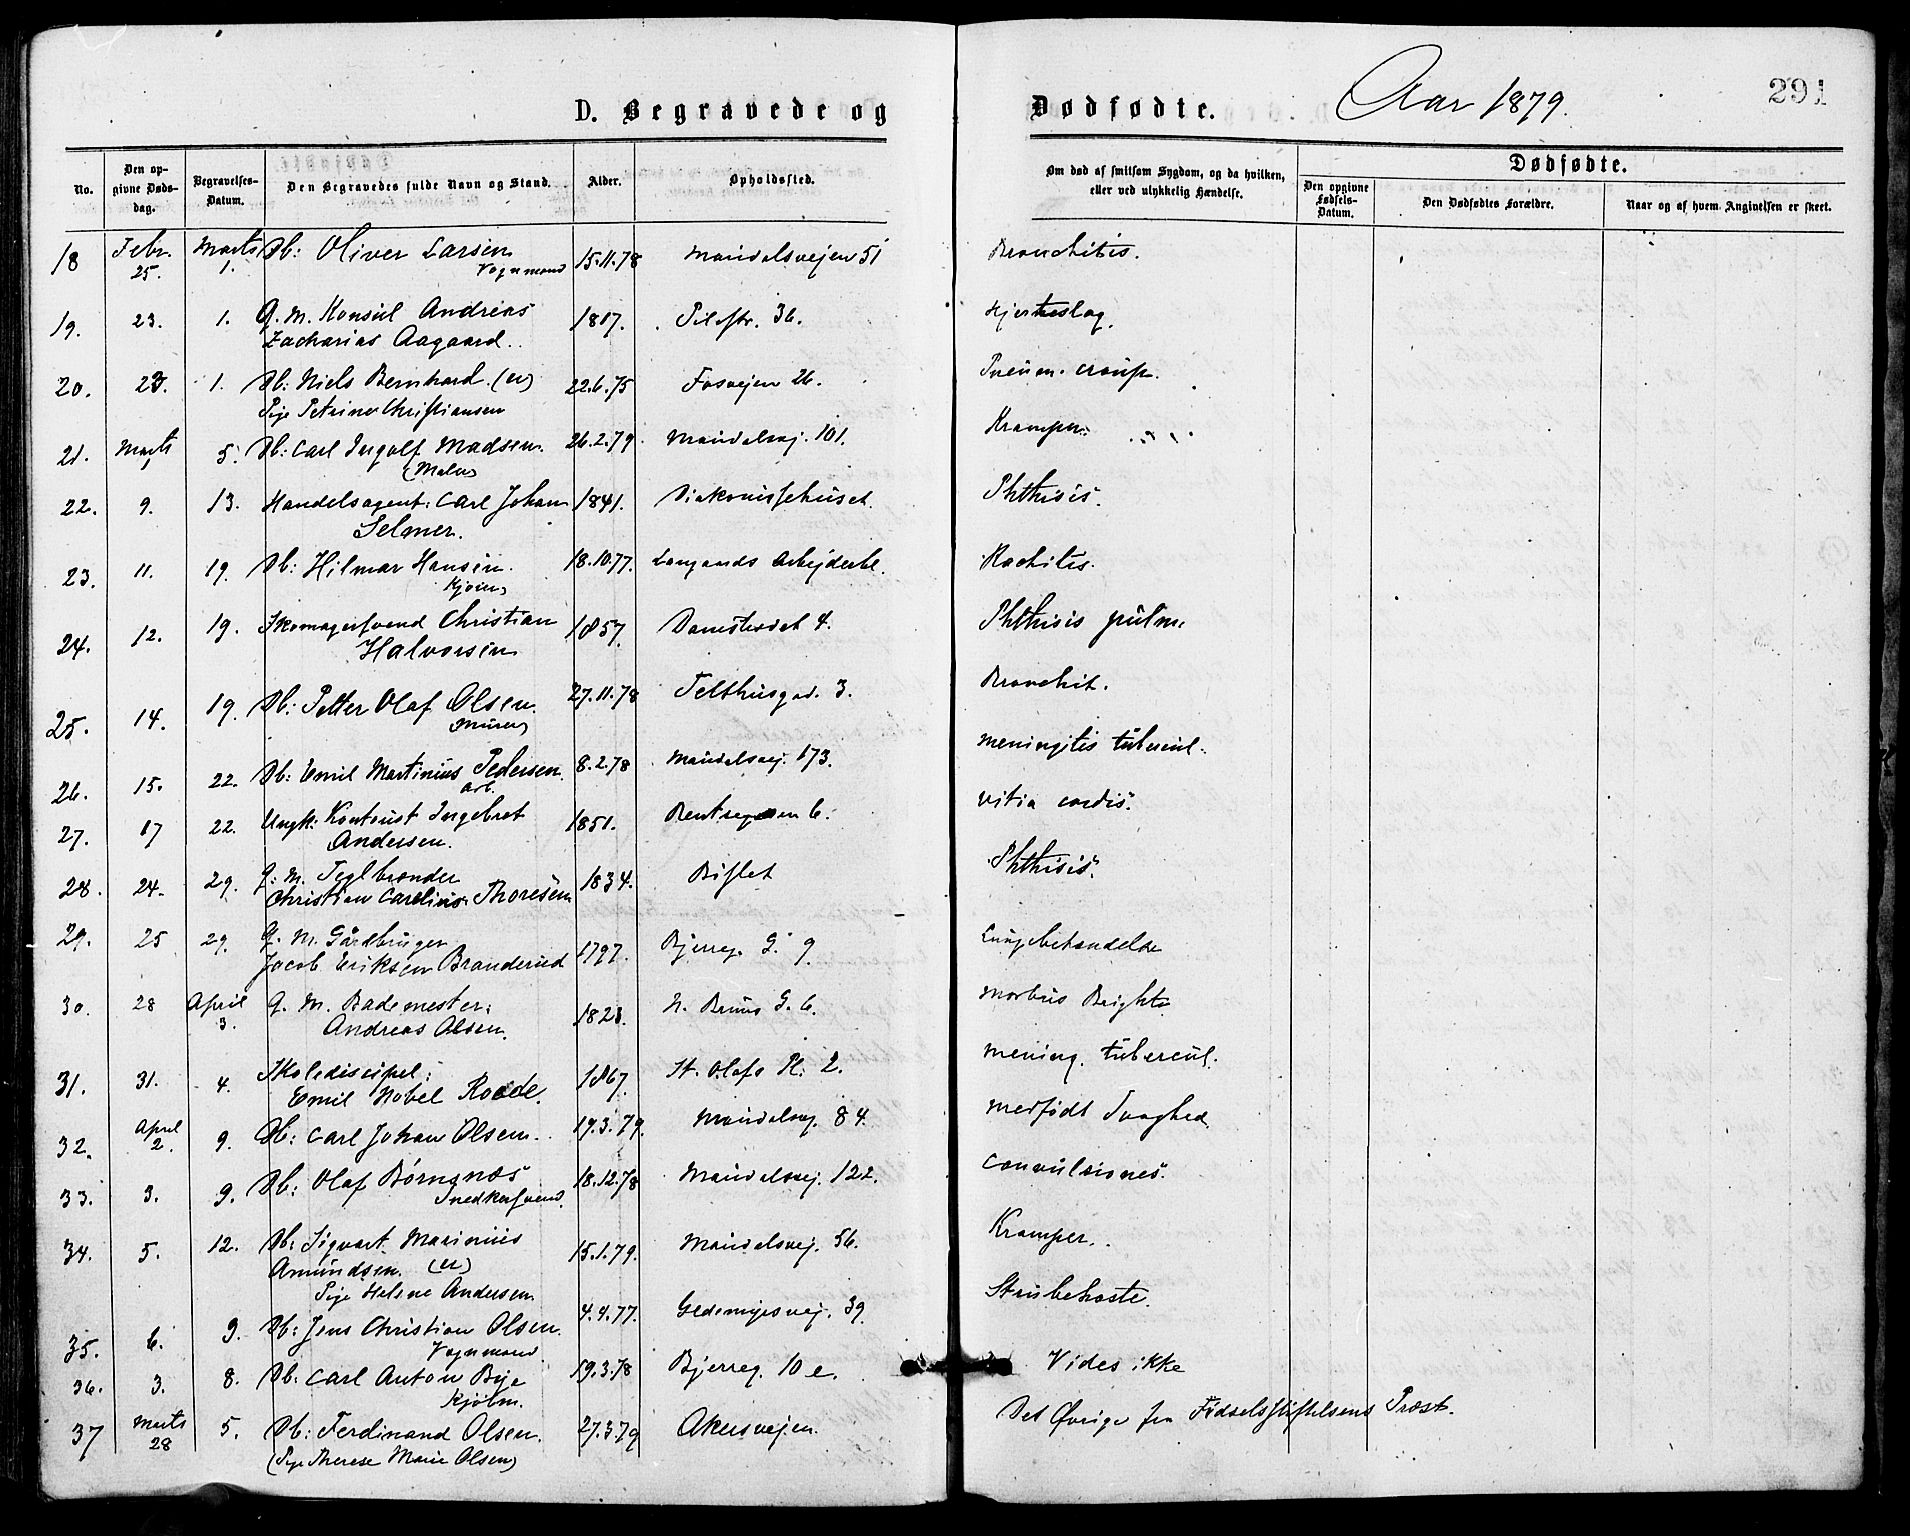 D. Begravede og Dødfødte. Aar 1879. 291
No. Den opgivne Dødsdag. Begravelses-Datum. Den Begravedes fulde Navn og Stand. Alder. Opholdssted. Om død af smitsom Sygdom, og da hvilken, eller ved ulykkelig Hændelse. Dødfødte. Den opgivne Fødsels-Datum. Den Dødfødtes Forældre. Naar og af hvem Angivelsen er skeet.
18 Febr. 25. Marts 1. Db: Oliver Larsen 15.11.78 Maridalsvejen 51 Bronchitis.
Vognmand
19. 23. 1. G. M. Konsul Andreas 1817. Pilestr. 36. Hjerteslag.
Zacharias Aagaard.
20. 23. 1. Db: Niels Bernhard (u) 22.6.75 Fosvejen 26. Pneum. croup.
Pige Petrine Christiansen
21. Marts 1 5. Db: Carl Ingolf Madsen. 26.2.79 Maridalsvej. 101. Kramper.
(Maler)
22. 9. 13. Handelsagent: Carl Johan 1841. Diakonissehuset. Phthisis.
Selmer.
23. 11. 19. Db: Hilmar Hansen. 18.10.77. Langaards Arbejderbol. Rachitis.
24. 12. 19. Skomagersvend Christian 1857. Damstredet 4. Phthisis pulm.
Halvorsen
25. 14. 19. Db: Petter Olaf Olsen. 27.11.78 Telthusgad. 3. Bronchit.
Murer
26. 15. 22. Db: Emil Martinius Pedersen. 8.2.78 Maridalsvej. 173. meningitis tubercul.
arb.
27. 17 22. Ungk: Kontorist Ingebret 1851. Bentsegaden 6. vitia cordis.
Andersen.
28. 24. 29. G. M. Teglbrænder 1834. Bislet Phthisis.
Christian Carelius Thoresen
29. 25 29. G. M. Gårdbruger 1797. Bjerreg. G. 9 Lungebetændelse
Jacob Eriksen Branderud
30. 28 April 3. G. M. Bademester: 1823. N. Bruns G. 6. morbus Brightii
Andreas Olsen.
31. 31. 4. Skoledisipel: 1867 St. Olafs Pl: 2. mening. tubercul.
Emil Nobel Roede.
32. April 2. 9. Db: Carl Johan Olsen. 19.3.79. Maridalsvej. 84. medfødt Svaghed.
33. 3. 9. Db: Olaf Børngnæs 18.12.78 Maridalsvej. 122. Convulsiones.
Snedkersvend.
34. 5. 12. Db: Sigvart Marinius 15.1.79. Maridalsvej. 56. Kramper.
Amundsen. (u)
Pige Helene Andersen
35. 6. 9. Db: Jens Christian Olsen. 4.4.77. Geitemyrsvej. 39. Strubehoste.
Vognmand.
36. 3. 8. Db: Carl Anton Bye 19.3.78 Bjerreg. 10 e. Vides ikke
Kjølm.
37 Marts 28 5. Db: Ferdinand Olsen. 27.3.79 Akersvejen. Det Øvrige fra Fødselsstiftelsens Præst.
(Pige Therese Marie Olsen)